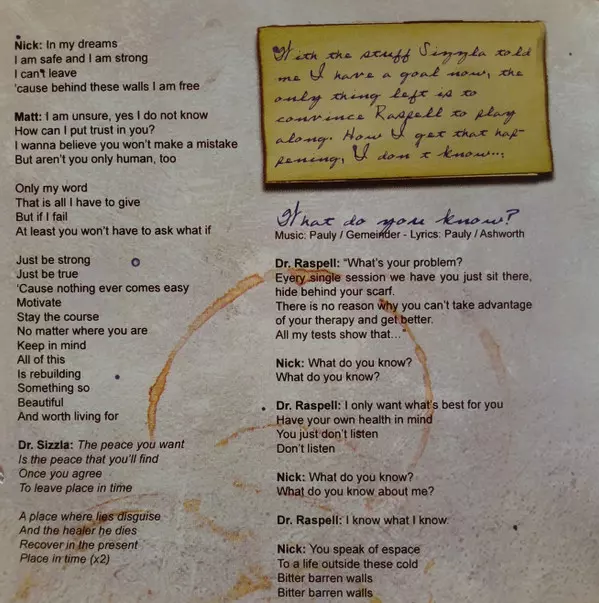 Nick: In my dreams
I am safe and I am strong
I can't leave
'cause behind these walls I am free
Matt: I am unsure, yes I do not know
How can I put trust in you?
I wanna believe you won't make a mistake
But aren't you only human, too
Only my word
That is all I have to give
But if I fail
At least you won't have to ask what if
Just be strong
Just be true
'Cause nothing ever comes easy
Motivate
Stay the course
No matter where you are
Keep in mind
All of this
Is rebuilding
Something so
Beautiful
And worth living for
Dr. Sizzla: The peace you want
Is the peace that you'll find
Once you agree
To leave place in time
A place where lies disguise
And the healer he dies
Recover in the present
Place in time (x2)
With the stuff Sizzla told
me I have a goal now, the
only thing left is to
convince Raspell to play
along. How I get that hap-
pening, I don't know...
What do you know?
Music: Pauly / Gemeinder - Lyrics: Pauly / Ashworth
Dr. Raspell: "What's your problem?
Every single session we have you just sit there,
hide behind your scarf.
There is no reason why you can't take advantage
of your therapy and get better.
All my tests show that..."
Nick: What do you know?
What do you know?
Dr. Raspell: I only want what's best for you
Have your own health in mind
You just don't listen
Don't listen
Nick: What do you know?
What do you know about me?
Dr. Raspell: I know what I know
Nick: You speak of espace
To a life outside these cold
Bitter barren walls
Bitter barren walls